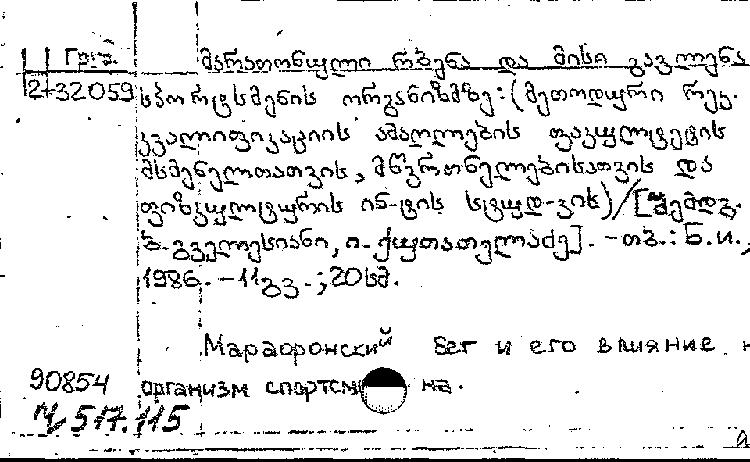 გრგ.
2-32059
მარათონული რბენა და მისი გავლენა
სპორტსმენის ორგანიზმზე: (მეთოდური რეკ.
კვალიფიკაციის ამაღლების ფაკულტეტის
მსმენელთათვის, მწვრთნელებისათვის და
ფიზკულტურის ინ-ტის სტუდ-ვის)/[შემდგ.
ბ. გველესიანი, ი. ქუთათელაძე]. - თბ.: ნ.ი.,
1986. - 11გვ.; 20სმ.
Марафонский бег и его влияние н
90854 организм спортсм на.
517.115